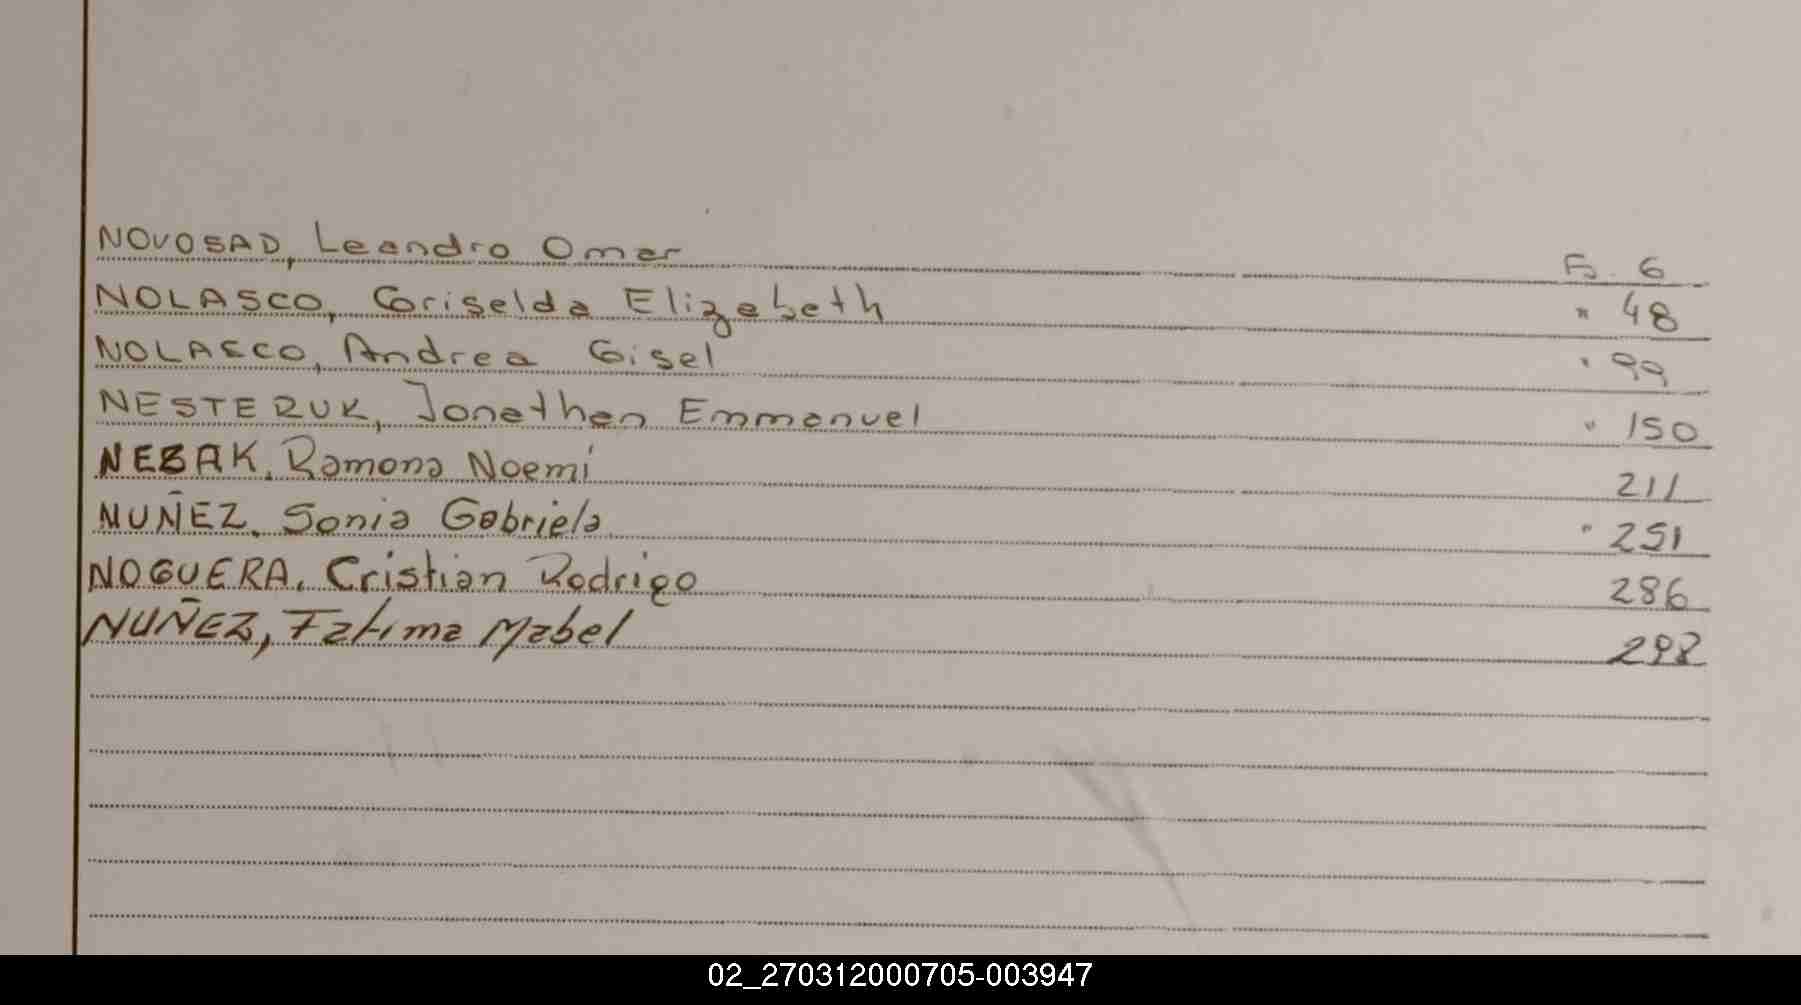 NOVOSAD, Leandro Omar Fs. 6
NOLASCO, Griselda Elizabeth " 48
NOLASCO, Andrea Gisel " 99
NESTERUK, Jonathan Emmanuel " 150
NEBAK, Ramona Noemí 211
NUÑEZ, Sonia Gabriela " 251
NOGUERA, Cristian Rodrigo 286
NUÑEZ, Fatima Mabel 298
02_270312000705-003947